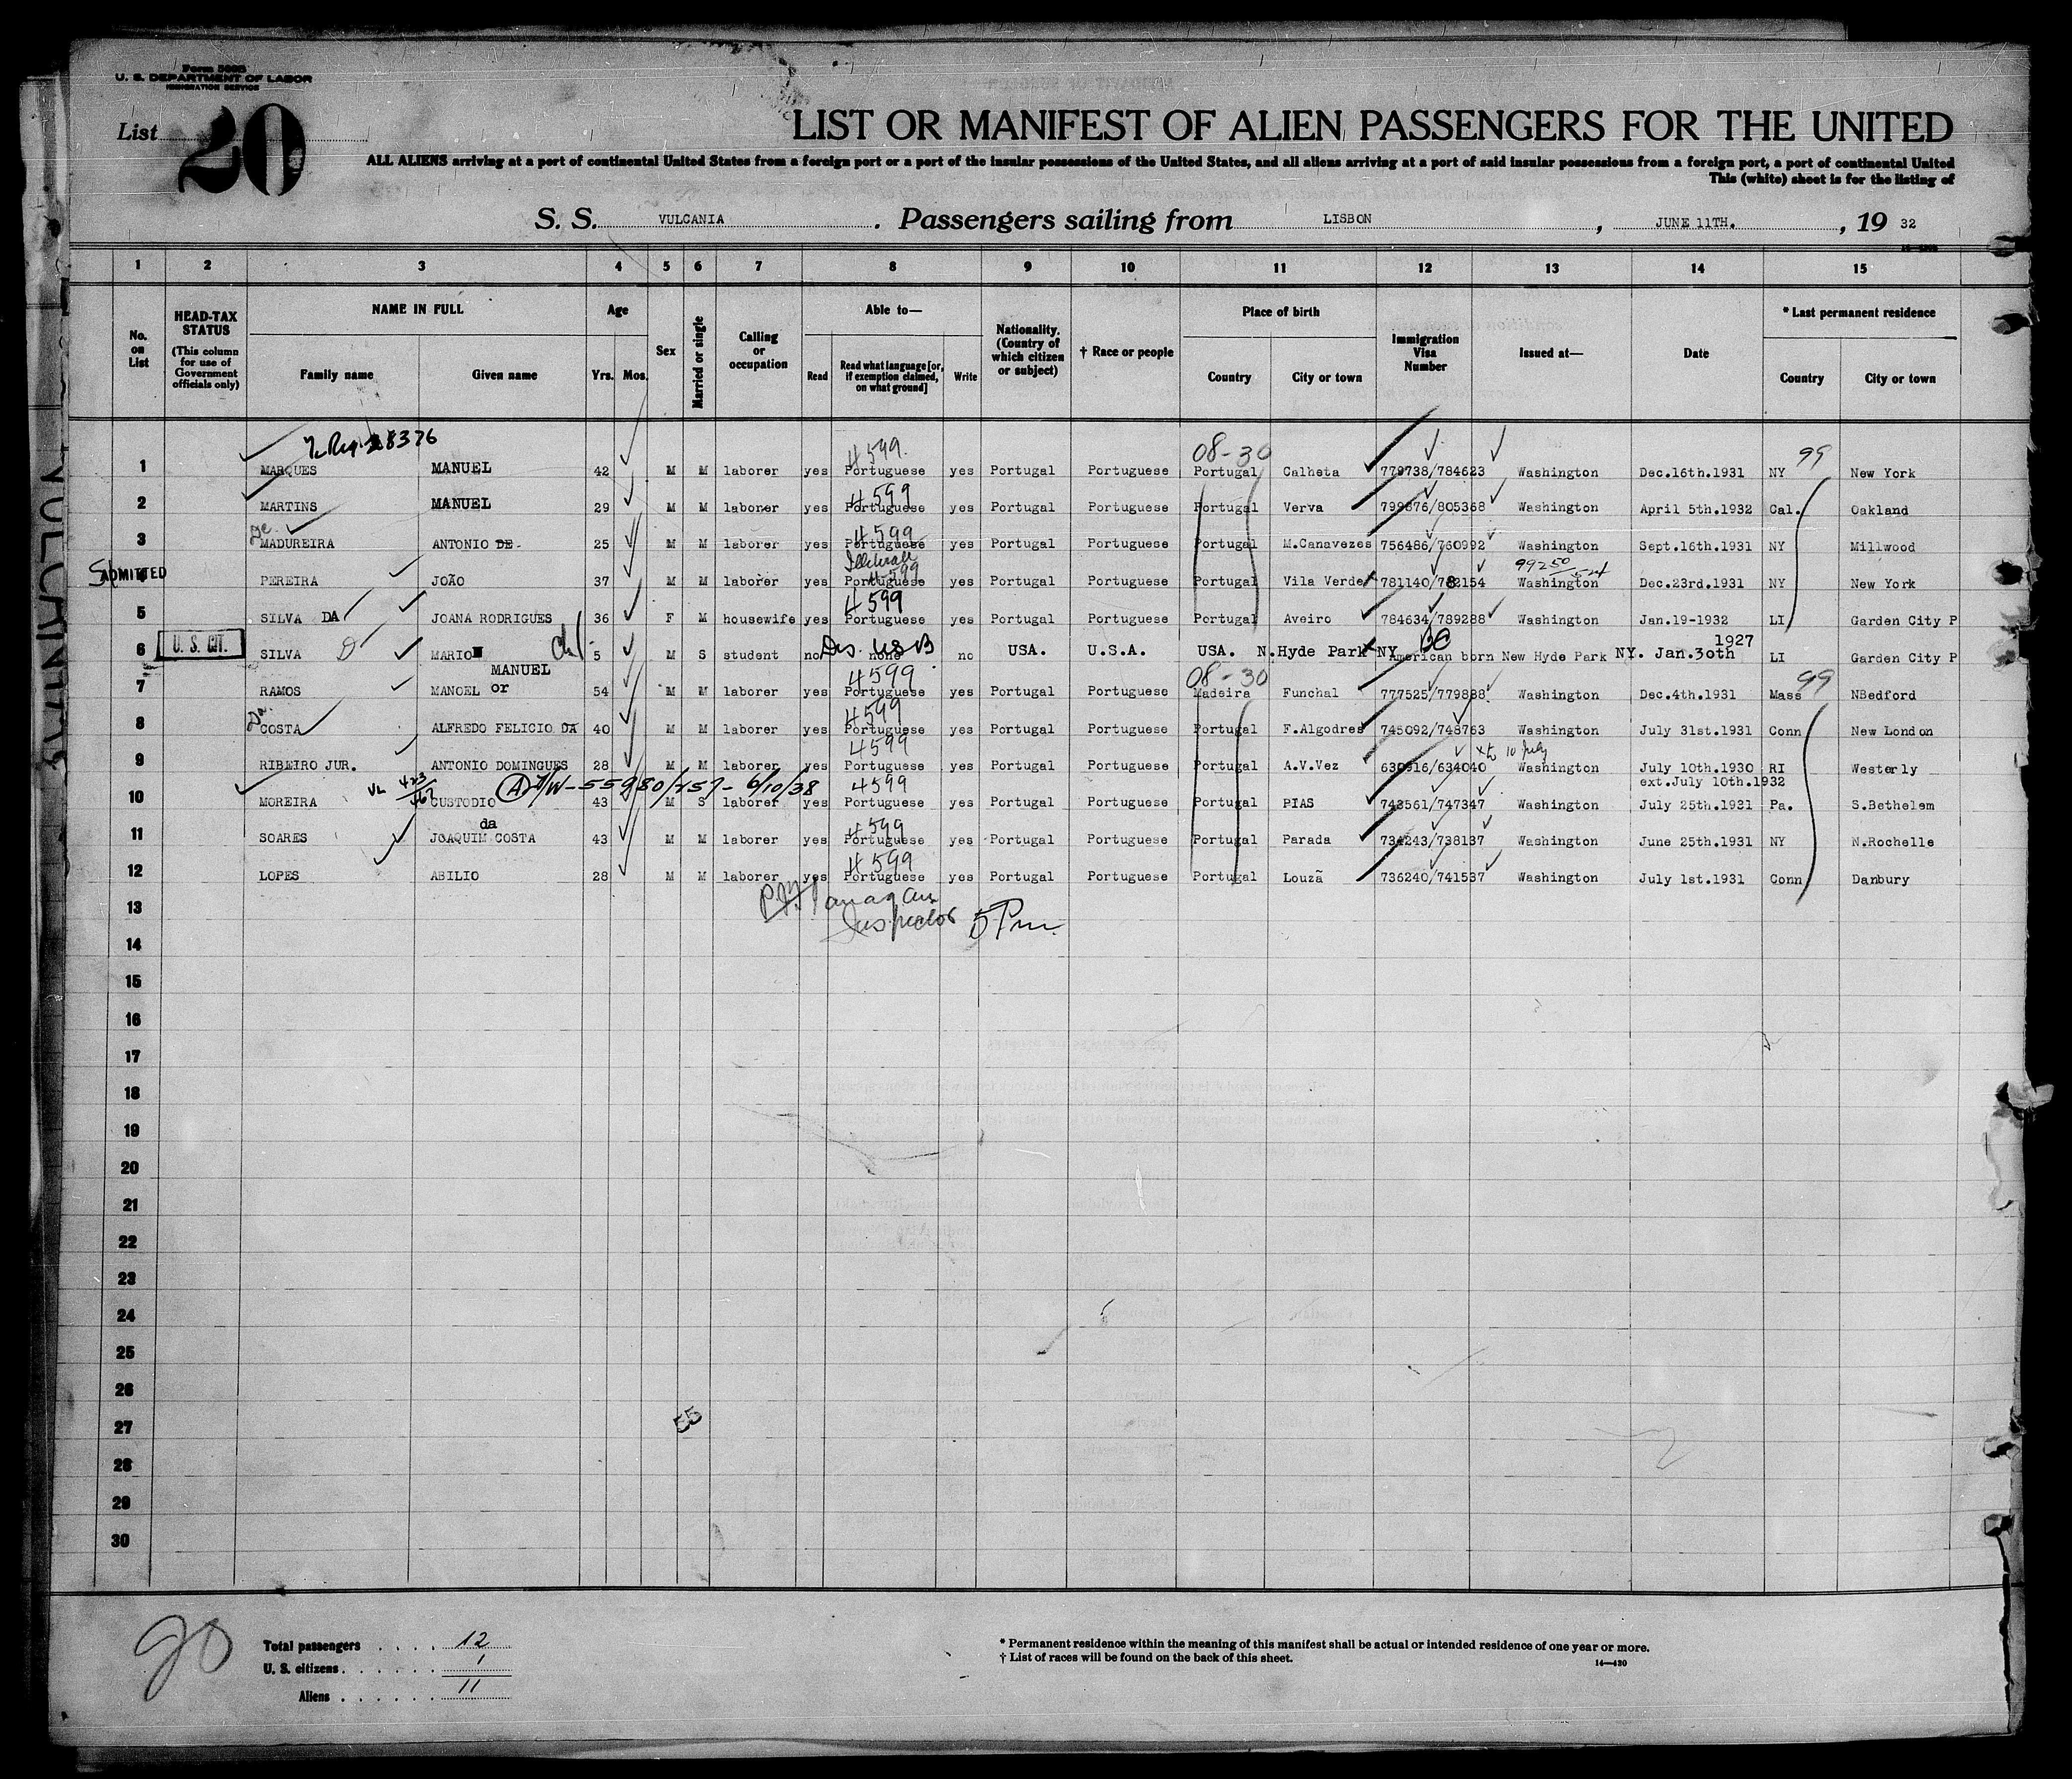 Form 500B
U. S. DEPARTMENT OF LABOR
IMMIGRATION SERVICE
List 20
LIST OR MANIFEST OF ALIEN PASSENGERS FOR THE UNITED
ALL ALIENS arriving at a port of continental United States from a foreign port or a port of the insular possessions of the United States, and all aliens arriving at a port of said insular possessions from a foreign port, a port of continental United
This (white) sheet is for the listing of
S. S. VULCANIA. Passengers sailing from LISBON, JUNE 11TH., 19 32
1 2 3 4 5 6 7 8 9 10 11 12 13 14 15
No. on List
HEAD-TAX STATUS (This column for use of Government officials only)
NAME IN FULL Family name Given name
Age Yrs. Mos.
Sex
Married or single
Calling or occupation
Able to— Read Read what language [or, if exemption claimed, on what ground] Write
Nationality. (Country of which citizen or subject)
† Race or people
Place of birth Country City or town
Immigration Visa Number
Issued at—
Date
* Last permanent residence Country City or town
28376 4599. 08-30 99
1 MARQUES MANUEL 42 M M laborer yes Portuguese yes Portugal Portuguese Portugal Calheta 779738/784623 Washington Dec.16th.1931 NY New York
4599
2 MARTINS MANUEL 29 M M laborer yes Portuguese yes Portugal Portuguese Portugal Verva 799876/805368 Washington April 5th.1932 Cal. Oakland
De 4599
3 MADUREIRA ANTONIO DE 25 M M laborer yes Portuguese yes Portugal Portuguese Portugal M.Canavezes 756486/760992 Washington Sept.16th.1931 NY Millwood
ADMITTED 4599 99250/524
4 PEREIRA JOÃO 37 M M laborer yes Portuguese yes Portugal Portuguese Portugal Vila Verde 781140/782154 Washington Dec.23rd.1931 NY New York
4599
5 SILVA DA JOANA RODRIGUES 36 F M housewife yes Portuguese yes Portugal Portuguese Portugal Aveiro 784634/789288 Washington Jan.19-1932 LI Garden City P
U. S. CIT. 1927
6 SILVA D MARIO 5 M S student no none no USA. U.S.A. USA. N.Hyde Park NY American born New Hyde Park NY. Jan.30th LI Garden City P
MANUEL 4599 08-30 99
7 RAMOS MANOEL or 54 M M laborer yes Portuguese yes Portugal Portuguese Madeira Funchal 777525/779888 Washington Dec.4th.1931 Mass NBedford
Da 4599
8 COSTA ALFREDO FELICIO DA 40 M M laborer yes Portuguese yes Portugal Portuguese Portugal F.Algodres 745092/748763 Washington July 31st.1931 Conn New London
4599 10 July
9 RIBEIRO JUR. ANTONIO DOMINGUES 28 M M laborer yes Portuguese yes Portugal Portuguese Portugal A.V.Vez 630916/634040 Washington July 10th.1930 RI Westerly
6/10/38 4599 ext.July 10th.1932
10 MOREIRA CUSTODIO 43 M S laborer yes Portuguese yes Portugal Portuguese Portugal PIAS 743561/747347 Washington July 25th.1931 Pa. S.Bethelem
da 4599
11 SOARES JOAQUIM COSTA 43 M M laborer yes Portuguese yes Portugal Portuguese Portugal Parada 734243/738137 Washington June 25th.1931 NY N.Rochelle
4599
12 LOPES ABILIO 28 M M laborer yes Portuguese yes Portugal Portuguese Portugal Louzã 736240/741537 Washington July 1st.1931 Conn Danbury
13
Inspector 5 Pm.
14
15
16
17
18
19
20
21
22
23
24
25
26
27
55
28
29
30
20
Total passengers . . . . 12
U. S. citizens . . . . . . 1
Aliens . . . . . . 11
* Permanent residence within the meaning of this manifest shall be actual or intended residence of one year or more.
† List of races will be found on the back of this sheet.
14—420
VULCANIA